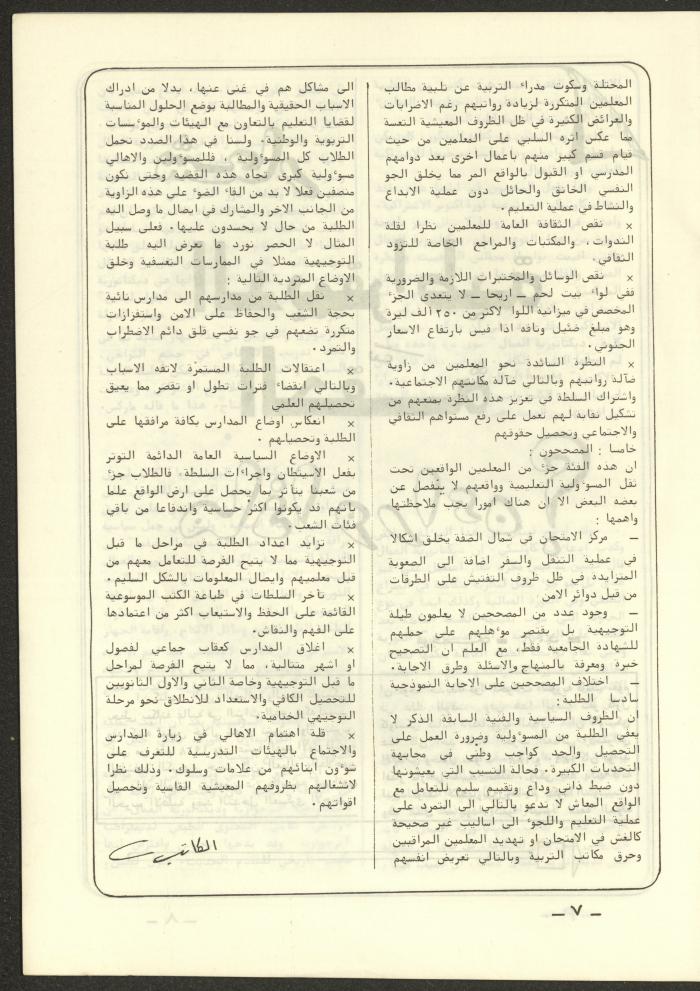 المحتلة وسكوت مدراء التربية عن تلبية مطالب
المعلمين المتكررة لزيادة رواتبهم رغم الاضرابات
والعرائض الكثيرة في ظل الظروف المعيشية التعسة
مما عكس اثره السلبي على المعلمين من حيث
قيام قسم كبير منهم باعمال اخرى بعد دوامهم
المدرسي او القبول بالواقع المر مما يخلق الجو
النفسي الخانق والحائل دون عملية الابداع
والنشاط في عملية التعليم .
× نقص الثقافة العامة للمعلمين نظرا لقلة
الندوات ، والمكتبات والمراجع الخاصة للتزود
الثقافي .
× نقص الوسائل والمختبرات اللازمة والضرورية
ففي لواء بيت لحم ــ اريحا ــ لا يتعدى الجزء
المخصص في ميزانية اللوا لاكثر من ٢٥٠ ألف ليرة
وهو مبلغ ضئيل وتافه اذا قيس بارتفاع الاسعار
الجنوني .
× النظرة السائدة نحو المعلمين من زاوية
ضآلة رواتبهم وبالتالي ضآلة مكانتهم الاجتماعية.
واشتراك السلطة في تعزيز هذه النظرة بمنعهم من
تشكيل نقابة لهم تعمل على رفع مستواهم الثقافي
والاجتماعي وتحصيل حقوقهم
خامسا : المصححون :
ان هذه الفئة جزء من المعلمين الواقعين تحت
ثقل المسؤولية التعليمية وواقعهم لا ينفصل عن
بعضه البعض الا ان هناك امورا يجب ملاحظتها
واهمها :
ــ مركز الامتحان في شمال الضفة يخلق اشكالا
في عملية التنقل والسفر اضافة الى الصعوبة
المتزايدة في ظل ظروف التفتيش على الطرقات
من قبل دوائر الامن
ــ وجود عدد من المصححين لا يعلمون طيلة
التوجيهية بل يقتصر مؤهلهم على حملهم
للشهادة الجامعية فقط، مع العلم ان التصحيح
خبرة ومعرفة بالمنهاج والاسئلة وطرق الاجابة .
ــ اختلاف المصححين على الاجابة النموذجية
سادسا الطلبة :
ان الظروف السياسية والفنية السابقة الذكر لا
يعفي الطلبة من المسؤولية وضرورة العمل على
التحصيل والجد كواجب وطني في مجابهة
التحديات الكبيرة . فحالة التسيب التي يعيشونها
دون ضبط ذاتي وداع وتقييم سليم للتعامل مع
الواقع المعاش لا تدعو بالتالي الى التمرد على
عملية التعليم واللجوء الى اساليب غير صحيحة
كالغش في الامتحان او تهديد المعلمين المراقبين
وحرق مكاتب التربية وبالتالي تعريض انفسهم
الى مشاكل هم في غنى عنها ، بدلا من ادراك
الاسباب الحقيقية والمطالبة بوضع الحلول المناسبة
لقضايا التعليم بالتعاون مع الهيئات والمؤسسات
التربوية والوطنية . ولسنا في هذا الصدد نحمل
الطلاب كل المسؤولية ، فللمسؤولين والاهالي
مسؤولية كبرى تجاه هذه القضية وحتى نكون
منصفين فعلا لا بد من القاء الضوء على هذه الزاوية
من الجانب الاخر والمشارك في ايصال ما وصل اليه
الطلبة من حال لا يحسدون عليها . فعلى سبيل
المثال لا الحصر نورد ما تعرض اليه طلبة
التوجيهية ممثلا في الممارسات التعسفية وخلق
الاوضاع المتردية التالية :
× نقل الطلبة من مدارسهم الى مدارس نائية
بحجة الشغب والحفاظ على الامن واستفزازات
متكررة تضعهم في جو نفسي قلق دائم الاضطراب
والتمرد .
× اعتقالات الطلبة المستمرة لاتفه الاسباب
وبالتالي انقضاء فترات تطول او تقصر مما يعيق
تحصيلهم العلمي
× انعكاس اوضاع المدارس بكافة مرافقها على
الطلبة وتحصيلهم .
× الاوضاع السياسية العامة الدائمة التوتر
بفعل الاستيطان واجراءات السلطة . فالطلاب جزء
من شعبنا يتأثر بما يحصل على ارض الواقع علما
بانهم قد يكونوا اكثر حساسية واندفاعا من باقي
فئات الشعب .
× تزايد اعداد الطلبة في مراحل ما قبل
التوجيهية مما لا يتيح الفرصة للتعامل معهم من
قبل معلميهم وايصال المعلومات بالشكل السليم .
× تأخر السلطات في طباعة الكتب الموسوعية
القائمة على الحفظ والاستيعاب اكثر من اعتمادها
على الفهم والنقاش .
× اغلاق المدارس كعقاب جماعي لفصول
او اشهر متتالية ، مما لا يتيح الفرصة لمراحل
ما قبل التوجيهية وخاصة الثاني والاول الثانويين
للتحصيل الكافي والاستعداد للانطلاق نحو مرحلة
التوجيهي الختامية .
× قلة اهتمام الاهالي في زيارة المدارس
والاجتماع بالهيئات التدريسية للتعرف على
شؤون ابنائهم من علامات وسلوك . وذلك نظرا
لانشغالهم بظروفهم المعيشية القاسية وتحصيل
اقواتهم .
الكاتب
ــ ٧ ــ